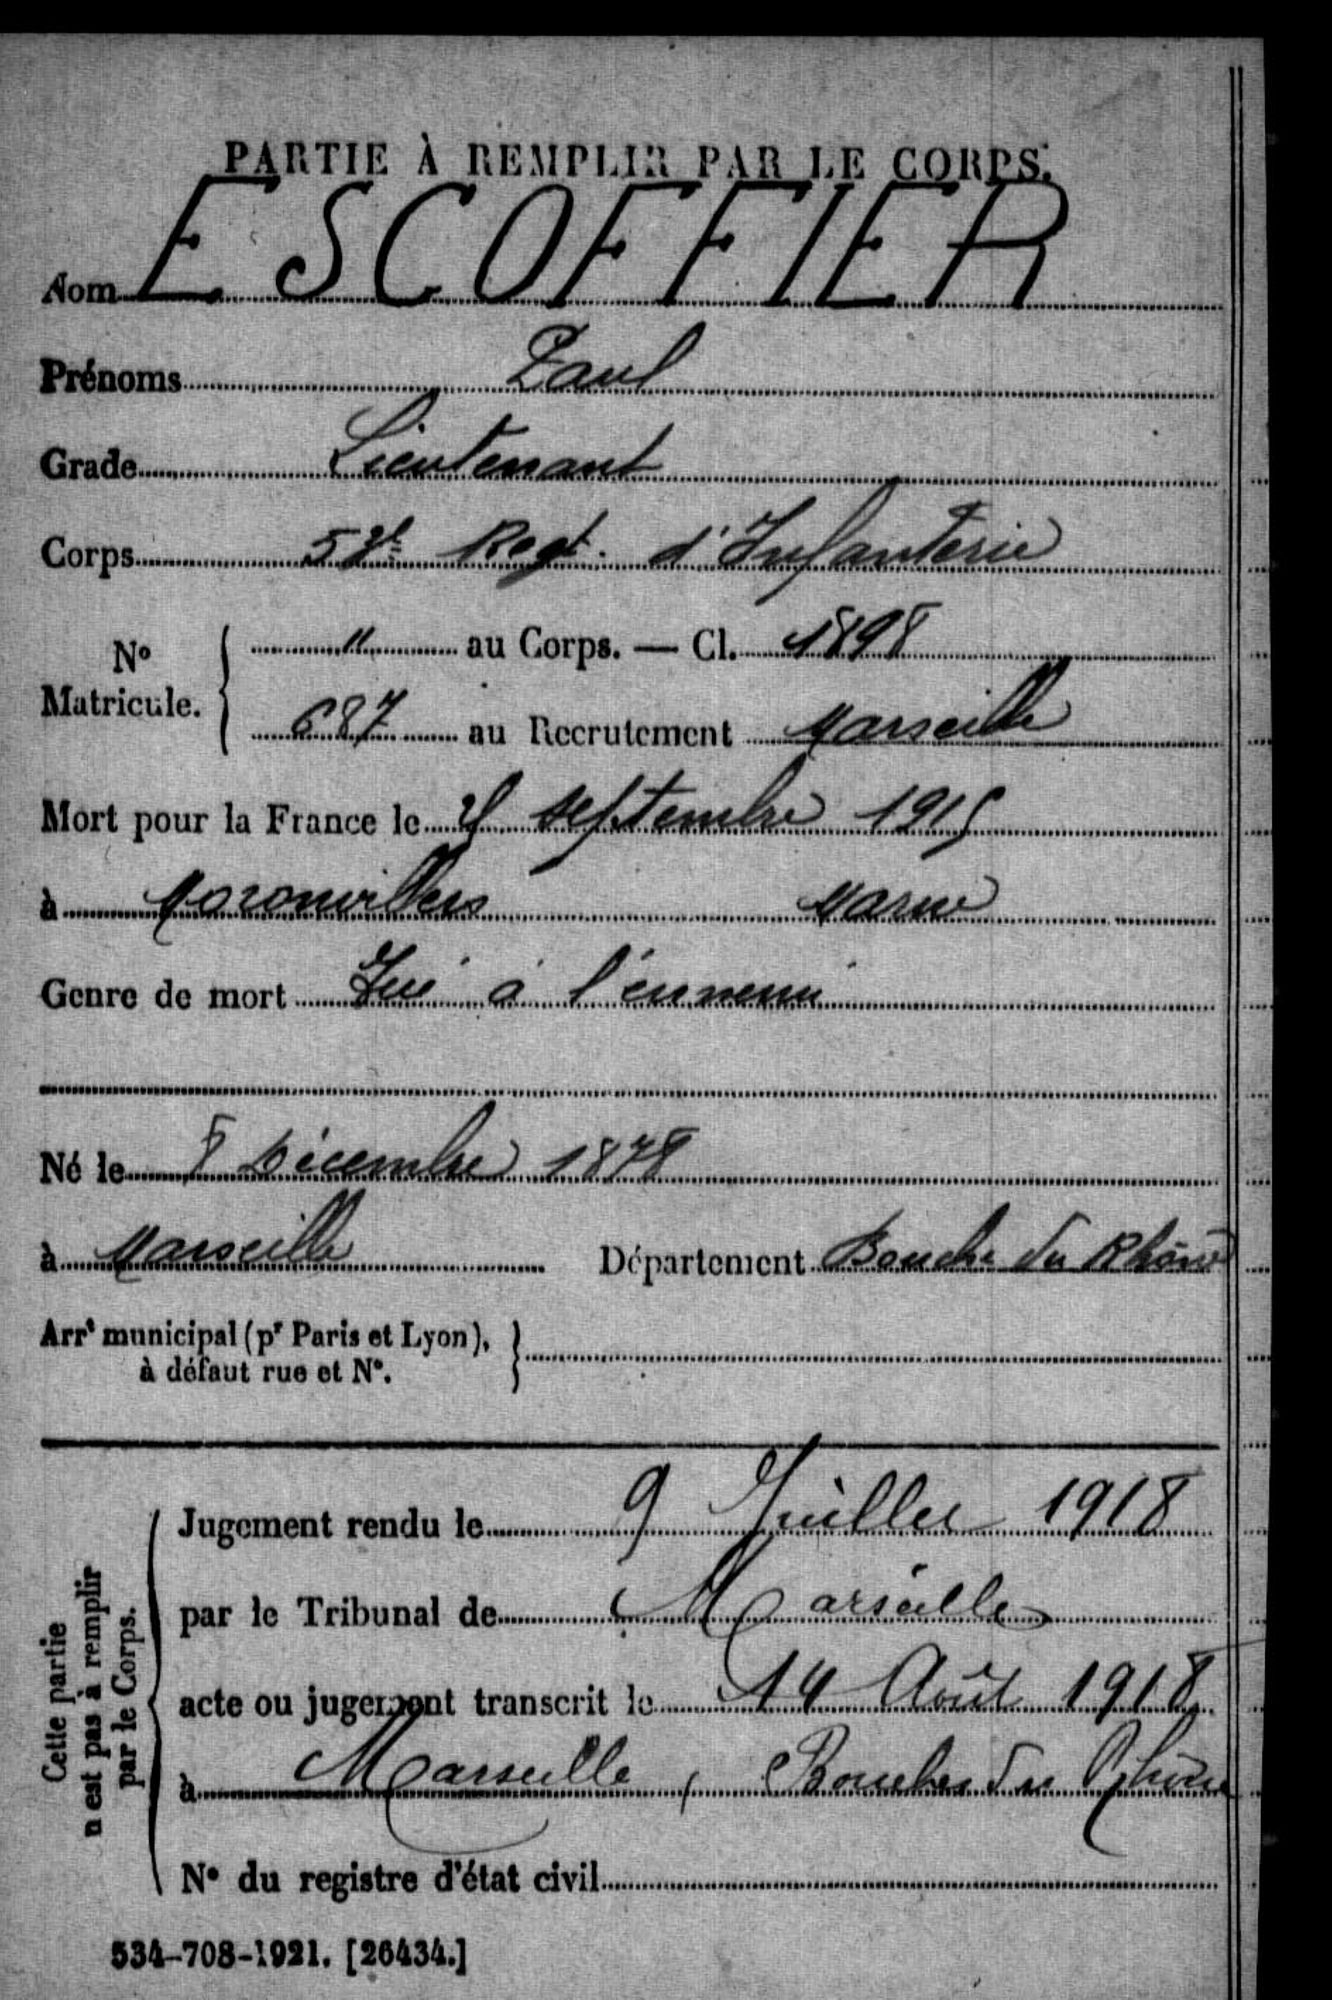 PARTIE À REMPLIR PAR LE CORPS.
Nom ESCOFFIER
Prénoms Paul
Grade Lieutenant
Corps Regt. d'Infanterie
No Matricule. { " au Corps. — Cl. 1898
687 au Recrutement Marseille
Mort pour la France le septembre 1915
à Moronvillers Marne
Genre de mort Tué à l'ennemi
Né le 8 Décembre 1878
à Marseille Département Bouche du Rhône
Arrt municipal (pr Paris et Lyon), }
à défaut rue et No.
Cette partie
n'est pas à remplir
par le Corps.
Jugement rendu le 9 Juillet 1918
par le Tribunal de Marseille
acte ou jugement transcrit le 14 Août 1918
à Marseille, Bouches du Rhône
No du registre d'état civil
534-708-1921. [26434.]